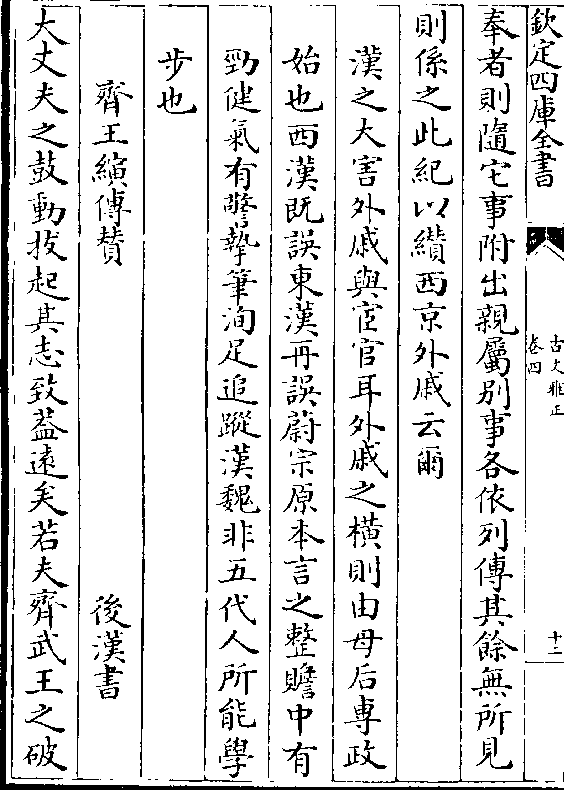 欽定四庫全書
古文雅正
卷四
十二
奉者則隨它事附出親屬別事各依列傳其餘無所見
則係之此紀以纘西京外戚云爾
漢之大害外戚與宦官耳外戚之橫則由母后專政
始也西漢既誤東漢再誤蔚宗原本言之整贍中有
勁健氣有驚摯筆洵足追蹤漢魏非五代人所能學
步也
齊王縯傳贊
後漢書
大丈夫之鼓動拔起其志致葢遠矣若夫齊武王之破